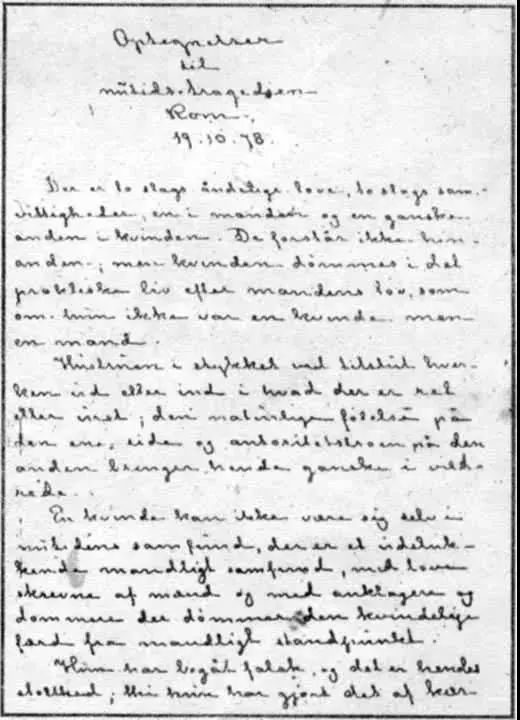 Optegnelser
til
nutids-tragedien
Rom.
19.10.78.
Der er to slags åndelige love, to slags sam-
vittigheder, en i manden og en ganske
anden i kvinden. De forstår ikke hin-
anden; men kvinden dömmes i det
praktiske liv efter mandens lov, som
om hun ikke var en kvinde men
en mand.
Hustruen i stykket ved tilslut hver-
ken ud eller ind i hvad der er ret
eller uret; den naturlige følelse på
den ene side og autoritetstroen på den
anden bringer hende ganske i vild-
rede.
En kvinde kan ikke være sig selv i
nutidens samfund, der er et udeluk-
kende mandligt samfund, med love
skrevne af mænd og med anklagere og
dommere der dömmer den kvindelige
færd fra mandligt standpunkt.
Hun har begåt falsk, og det er hendes
stolthed; thi hun har gjort det af kær-